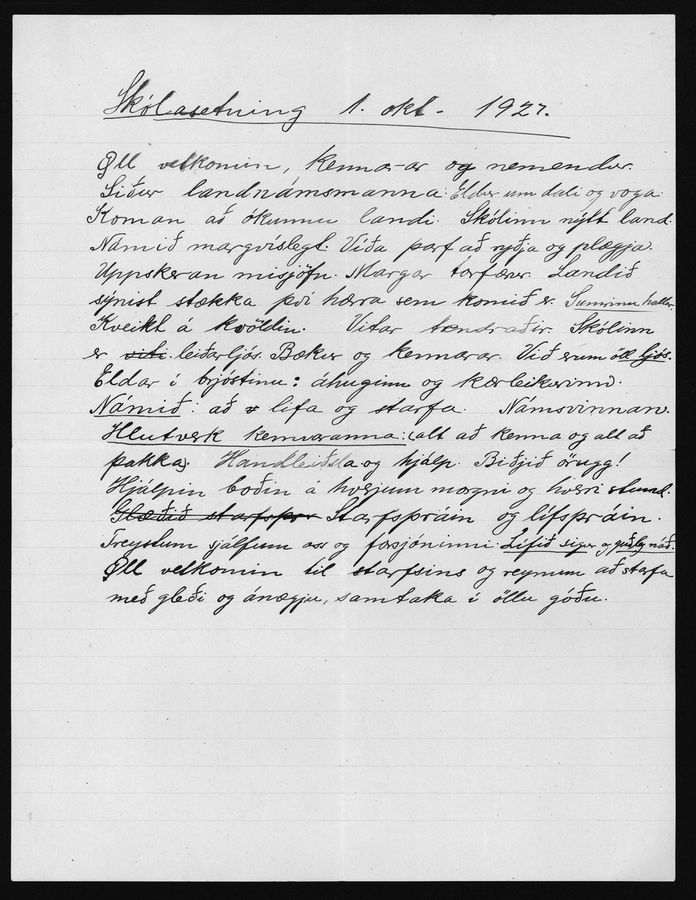 Skólasetning 1. okt - 1927.
Öll velkomin, kennarar og nemendur.
Siður landnámsmanna: Eldur um dali og voga.
Koman að ókunnu landi. Skólinn nýtt land.
Námið margvíslegt. Víða þarf að ryðja og plægja.
Uppskeran misjöfn. Margar torfærur. Landið
sýnist stækka því hærra sem komið er. Sumrinu hallar.
Kveikt á kvöldin. Vitar tendraðir. Skólinn
er viti leiðarljós. Bækur og kennarar. Við erum öll ljós.
Eldar í brjóstinu: áhuginn og kærleikurinn.
Námið: að lifa og starfa. Námsvinnan.
Hlutverk kennaranna: (alt að kenna og alt að
þakka). Handleiðsla og hjálp. Biðjið örugg!
Hjálpin boðin á hverjum morgni og hverri stund.
Glæðið starfsþrá Starfsþráin og lífsþráin.
Treystum sjálfum oss og forsjóninni. Lífið sigrar og guðleg náð.
Öll velkomin til starfsins og reynum að starfa
með gleði og ánægju, samtaka í öllu góðu.